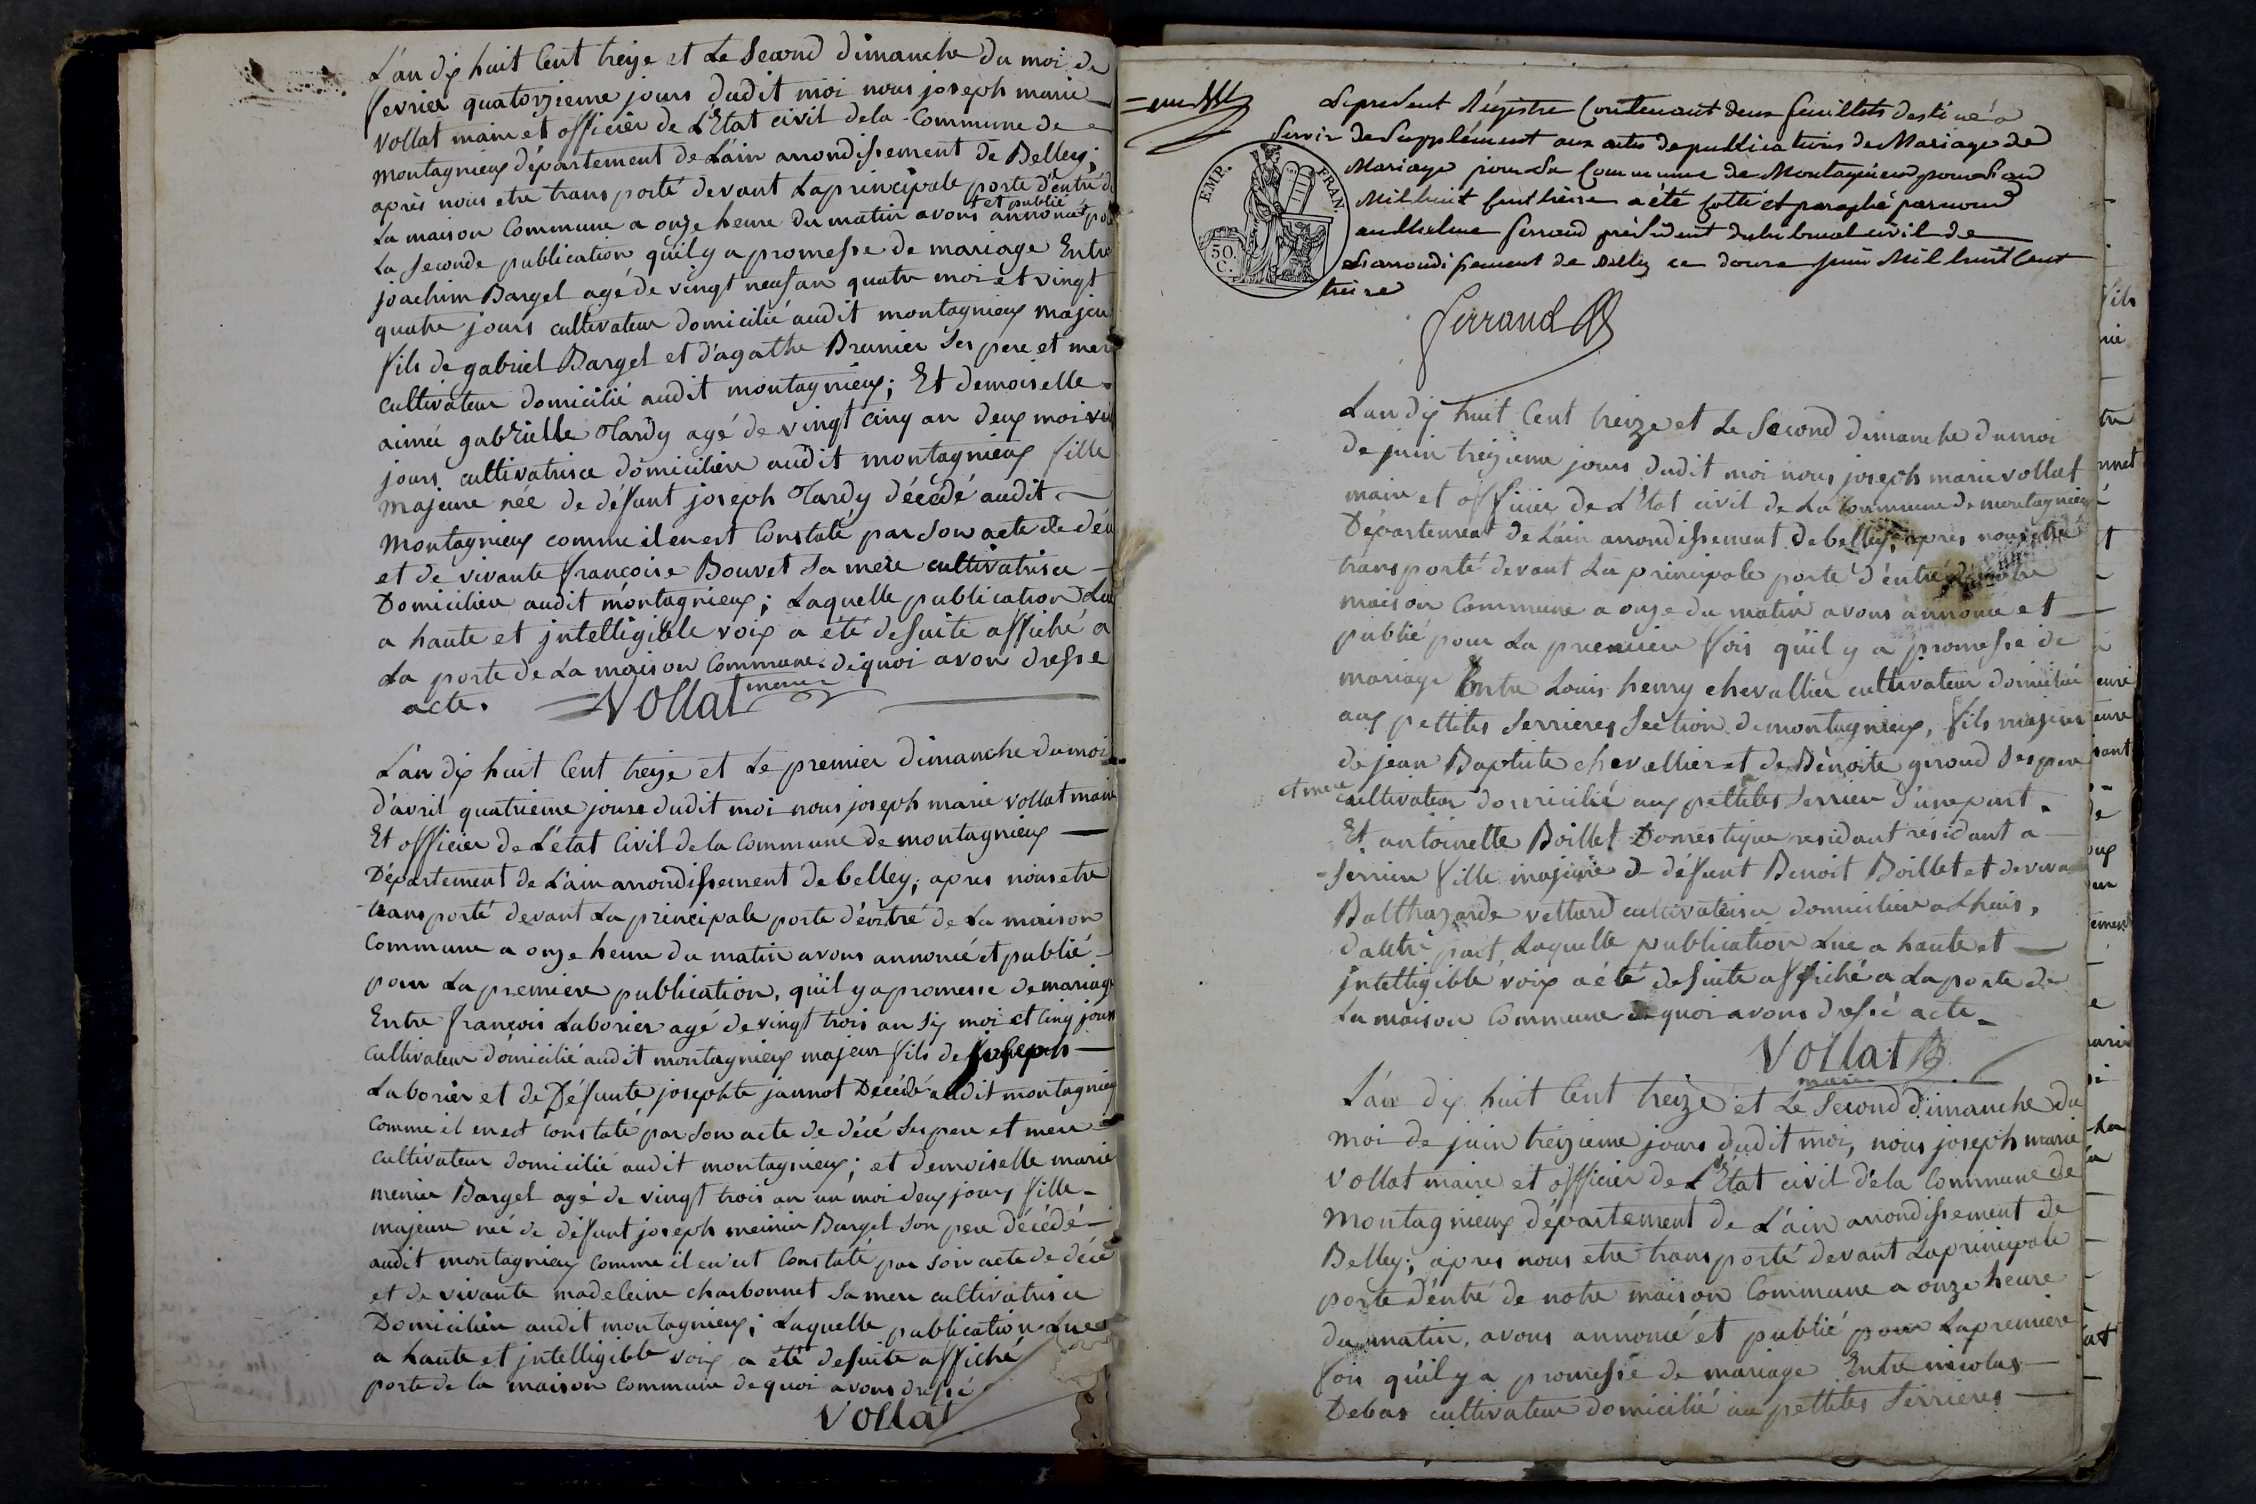 L'an dix huit Cent treize et Le Second dimanche du moi de
fevrier quatorzieme jours dudit moi nous joseph marie
vollat maire et officier de L'Etat civil dela Commune de
montagnieux département de L'ain arrondissement de Belley;
après nous etre transporté devant Laprincipale porte d'entré de
La maison Commune a onze heure du matin avons annoncé et publié pour
La seconde publication qu'il y a promesse de mariage Entre
joachim Bargel agé de vingt neuf an quatre moi et vingt
quatre jours cultivateur domicilié audit montagnieux majeur
fils de gabriel Bargel et d'agathe Brunier ses pere et mere
cultivateur domicilié audit montagnieux; Et demoiselle
aimée gabrielle Tardy agé de vingt cinq an deux moi
jours cultivatrice domiciliere audit montagnieux fille
majeure née de défunt joseph Tardy décédé audit
montagnieux comme il en est Constaté par son acte de
et de vivante françoise Bouvet sa mère cultivatrice
Domiciliere audit montagnieux; Laquelle publication Lue
a haute et jntelligible voix a été desuite affiché a
La porte de La maison Commune. de quoi avon dresse
acte. Vollat maire
L'an dix huit Cent treize et Le premier dimanche du moi
d'avril quatrieme jours dudit moi nous joseph marie vollat maire
Et officier de L'état Civil de la Commune de montagnieux
Département de L'ain arrondissement de belley; apres nous etre
transporté devant La principale porte d'entré de La maison
Commune a onze heure du matin avons annoncé et publié
pour La premiere publication, qu'il y a promesse de mariage
Entre françois Laborier agé de vingt trois an six moi et Cinq jours
Cultivateur domicilié audit montagnieux majeur fils de joseph
Laborier et de Défunte josephte jannot Décédé audit montagnieux
Comme il en est constaté par son acte de décé ses pere et mere
cultivateur domicilié audit montagnieux; et demoiselle marie
menier Bargel agé de vingt trois an un moi deux jours fille
majeure née de défunt joseph meinier Bargel son pere décédé
audit montagnieux comme il en est Constaté par son acte de décé
et de vivante madeleine charbonnet sa mere cultivatrice
Domiciliere audit montagnieux; Laquelle publication Lue
a haute et jntelligible voix a été desuite affiché
porte de la maison commune de quoi avons dressé
Vollat
Le present Régistre Contenant deux feuillets destiné a
servir de Supplément aux actes de publications de Mariage de
Mariage pour la Commune de Montagnieux pour l'an
Mil huit Cent treize a été Cotté et paraphé par nous
anthelme ferrand président du tribunal civil de
L'arrondissement de Belley ce douze juin Mil huit Cent
treize
EMP. FRAN.
50.
C.
ferrand
L'an dix huit Cent treize et Le Second dimanche du moi
de juin treizieme jours dudit moi nous joseph marie vollat
maire et officier de L'Etat civil de La Commune de montagnieux
Département de L'ain arrondissement de belley; apres nous etre
transporté devant La principale porte d'entré de notre
maison Commune a onze du matin avons annoncé et
publié pour La premiere fois qu'il y a promesse de
mariage Entre Louis henry chevallier cultivateur domicilié
aux pettites serrieres Section de montagnieux, fils majeur
de jean Baptiste chevallier et de Bènoite geroud ses pere
et mere cultivateur domicilié aux pettites serriere d'une part.
Et antoinette Boillet Domestique residant résidant a
serriere fille majeure de défunt Benoit Boillet et de vivante
Balthazarde vettard cultivatrice domiciliere a Lhuis,
d'autre part, Laquelle publication Lue a haute et
jntelligible voix a été desuite affiché a La porte de
La maison Commune de quoi avons dressé acte
Vollat
maire
L'an dix huit Cent treize et Le Second dimanche du
moi de juin treizieme jours dudit moi, nous joseph marie
vollat maire et officier de L'Etat civil dela Commune de
montagnieux département de L'ain arrondissement de
Belley; apres nous etre transporté devant Laprincipale
porte d'entré de notre maison Commune a onze heure
du matin, avons annoncé et publié pour La premiere
fois qu'il y a promesse de mariage Entre nicolas
Debas cultivateur domicilié au pettites serrieres